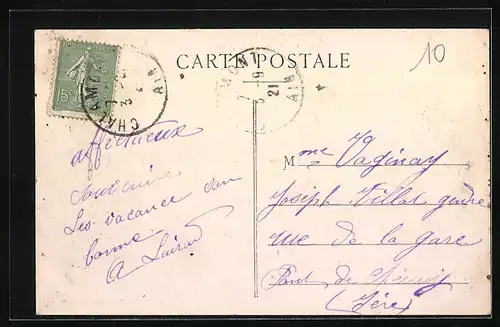 CARTE POSTALE
10
15
CHALAMONT
AIN
MONT
AIN
21
affectueux
souvenir
Les vacance son
bonne
A
Mme Vaginay
Joseph Villat gendre
rue de la gare
Pont de Chéruy
(Isère)